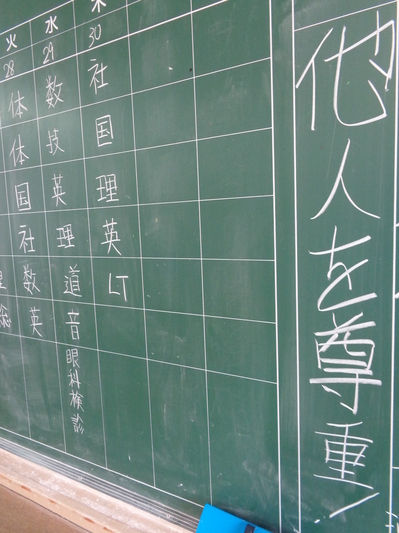 他人を尊重
火 水 木
28 29 30
体 数 社
体 技 国
国 英 理
社 理 英
数 道 LT
総 英 音
眼科検診